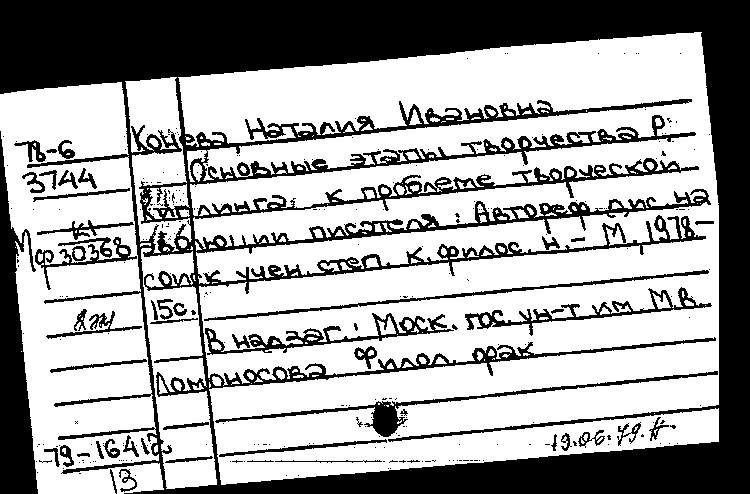 78-6
3744
Конева, Наталия Ивановна
Основные этапы творчества Р.
Киплинга к проблеме творческой
эволюции писателя : Автореф. дис. на
соиск. учен. степ. к. филос. н. - М., 1978-
15с.
В надзаг.: Моск. гос. ун-т им. М.В.
Ломоносова. Филол. фак
Мф30368
79-16412
13
19.06.79.